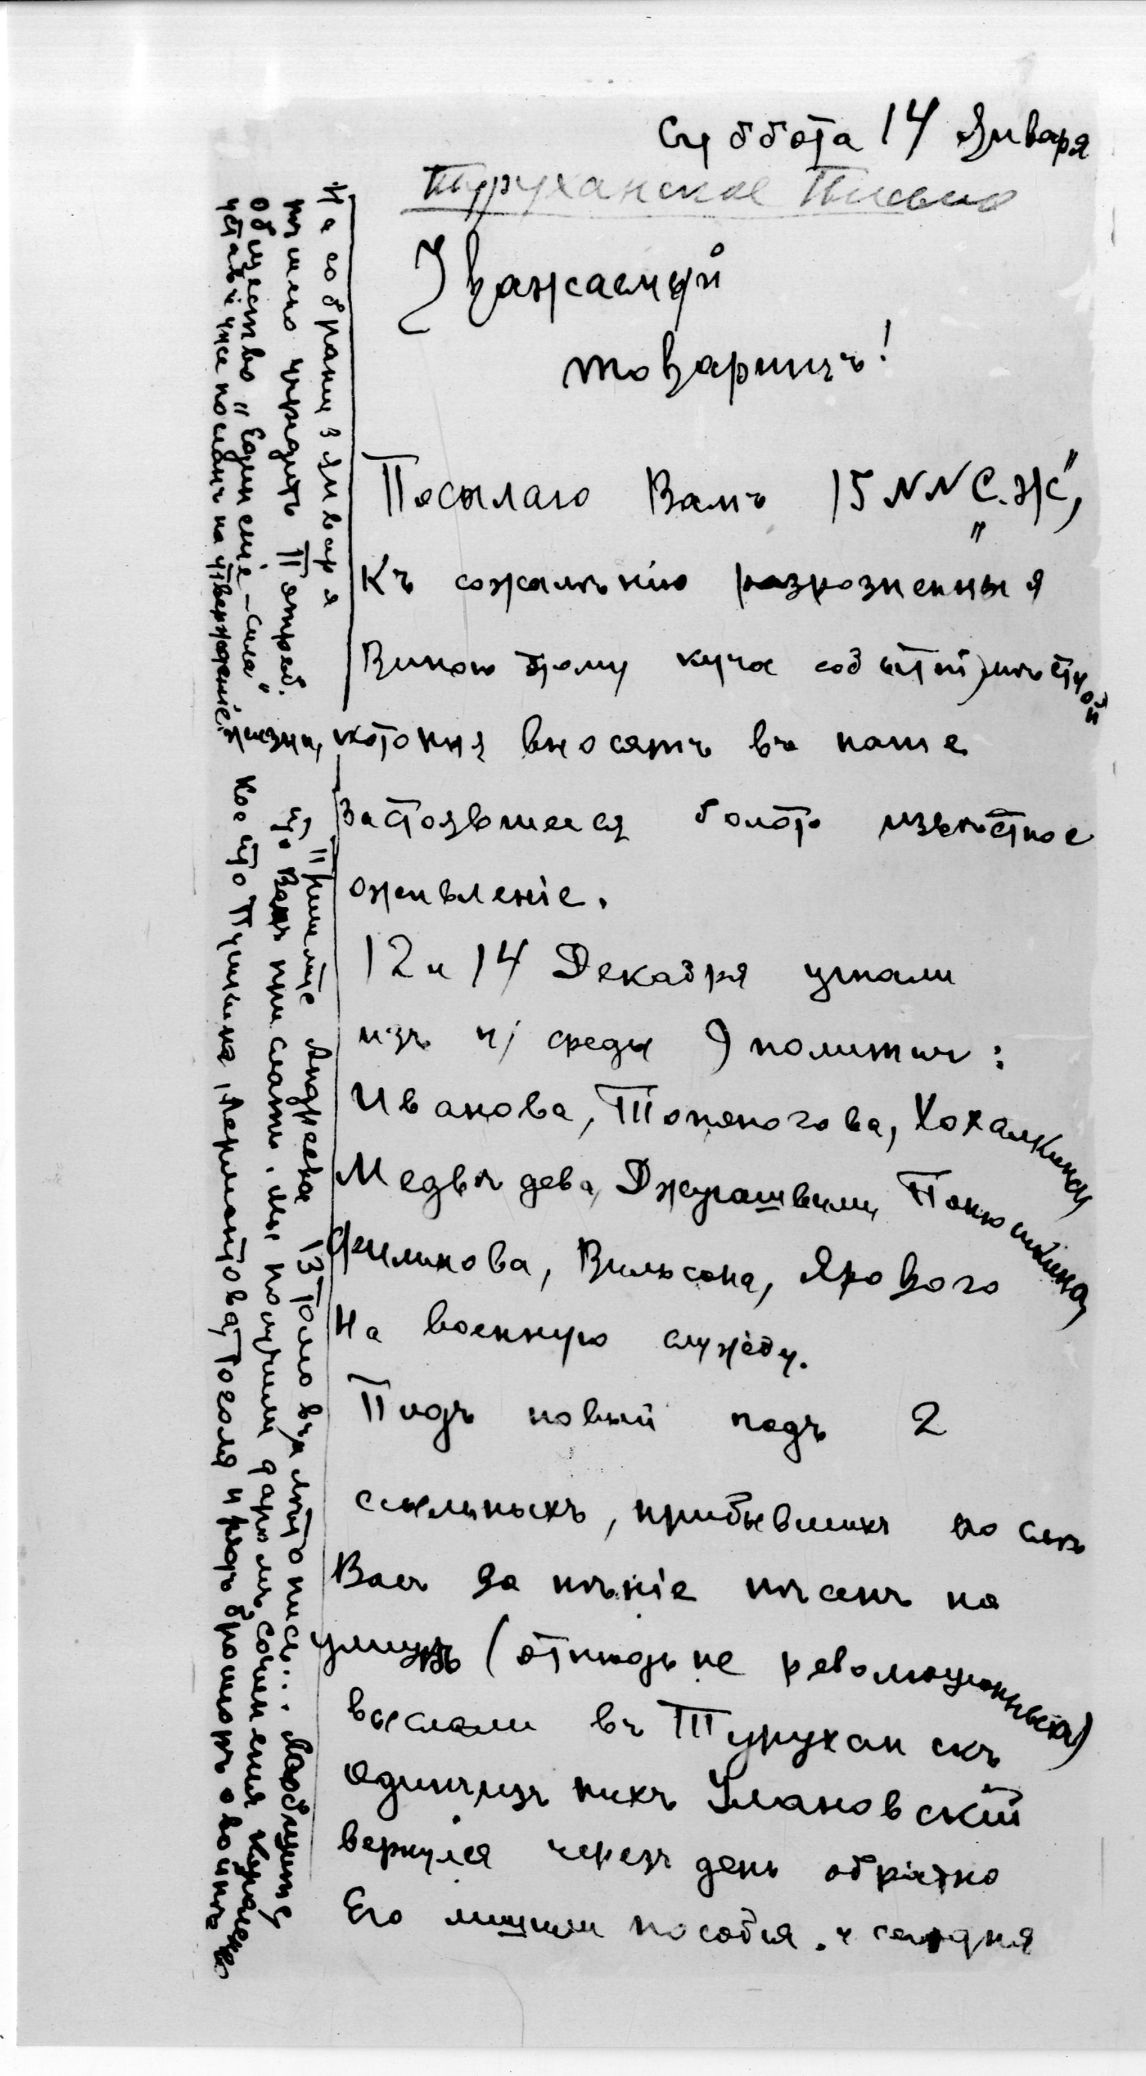 Суббота 14 Января
Туруханское Письмо
Уважаемый
товарищъ!
Посылаю Вамъ 15 NN „С.Ж“,
къ сожалѣнію разрозненныя
Виною тому куча событій мѣстной
жизни, которыя вносятъ въ наше
застоявшееся болото извѣстное
оживленіе.
12 и 14 Декабря угнали
изъ н/ среды 9 политич:
Иванова, Топоногова, Хохалкина
Медвѣдева, Джугашвили,
Филинова, Вильсона, Ярового
На военную службу.
Подъ новый годъ 2
ссыльныхъ, прибывшихъ послѣ
Васъ за пѣніе пѣсенъ на
улицѣ (отнюдь не революціонныхъ)
выслали въ Туруханскъ
Одинъ изъ нихъ Улановскій
вернулся через день обратно
Его лишили пособія. и сегодня
На собраніи 3 января
рѣшено учредить Потреб.
общество „Единеніе – сила“
уставъ уже посланъ на утвержденіе.
Пришлите Андреева 13 томовъ, лѣтопись...
что Вамъ прислать. Мы получили даромъ сочиненія Короленко,
кое что Пушкина, Лермонтова, Гоголя и рядъ брошюръ о войнѣ